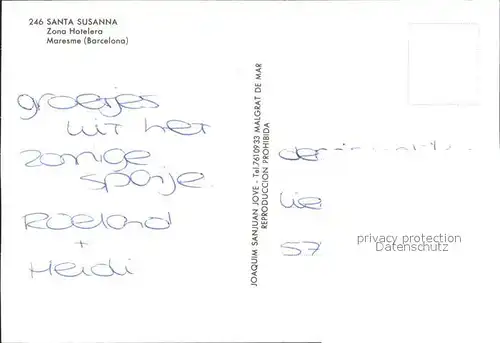 246 SANTA SUSANNA
Zona Hotelera
Maresme (Barcelona)
groetjes
uit het
zonnige
spanje.
Roeland
+
Heidi
JOAQUIM SANJUAN JOVE - Tel.7610933 MALGRAT DE MAR
REPRODUCCION PROHIBIDA
57
privacy protection
Datenschutz